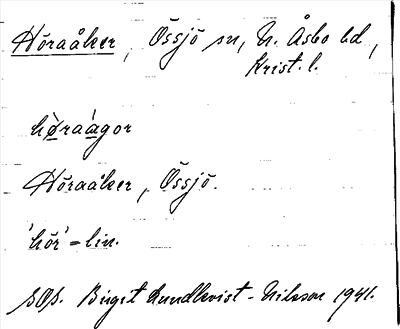 Höraåker, Össjö sn, N. Åsbo hd,
Krist. l.
hø̀raágor
Höraåker, Össjö.
'hör' = lin.
SOA. Birgit Lundkvist-Nilsson 1941.